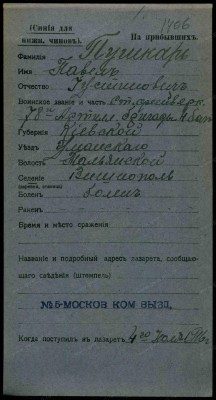 1406
(Синія для нижн. чиновъ).
На прибывшихъ.
Фамилія Пушкарь
Имя Павелъ
Отчество Устиновичъ
Воинское званіе и часть ст. фейерв.
78й Артил. бригады 4 бат
Губернія Кіевской
Уѣздъ Уманскаго
Волость
Селеніе
Боленъ боленъ
Раненъ
Время и мѣсто сраженія
Названіе и подробный адресъ лазарета, сообщающаго свѣдѣнія (штемпель)
№5-МОСКОВ КОМ ВЫЗД.
Когда поступилъ въ лазаретъ 4го Іюля 1916г